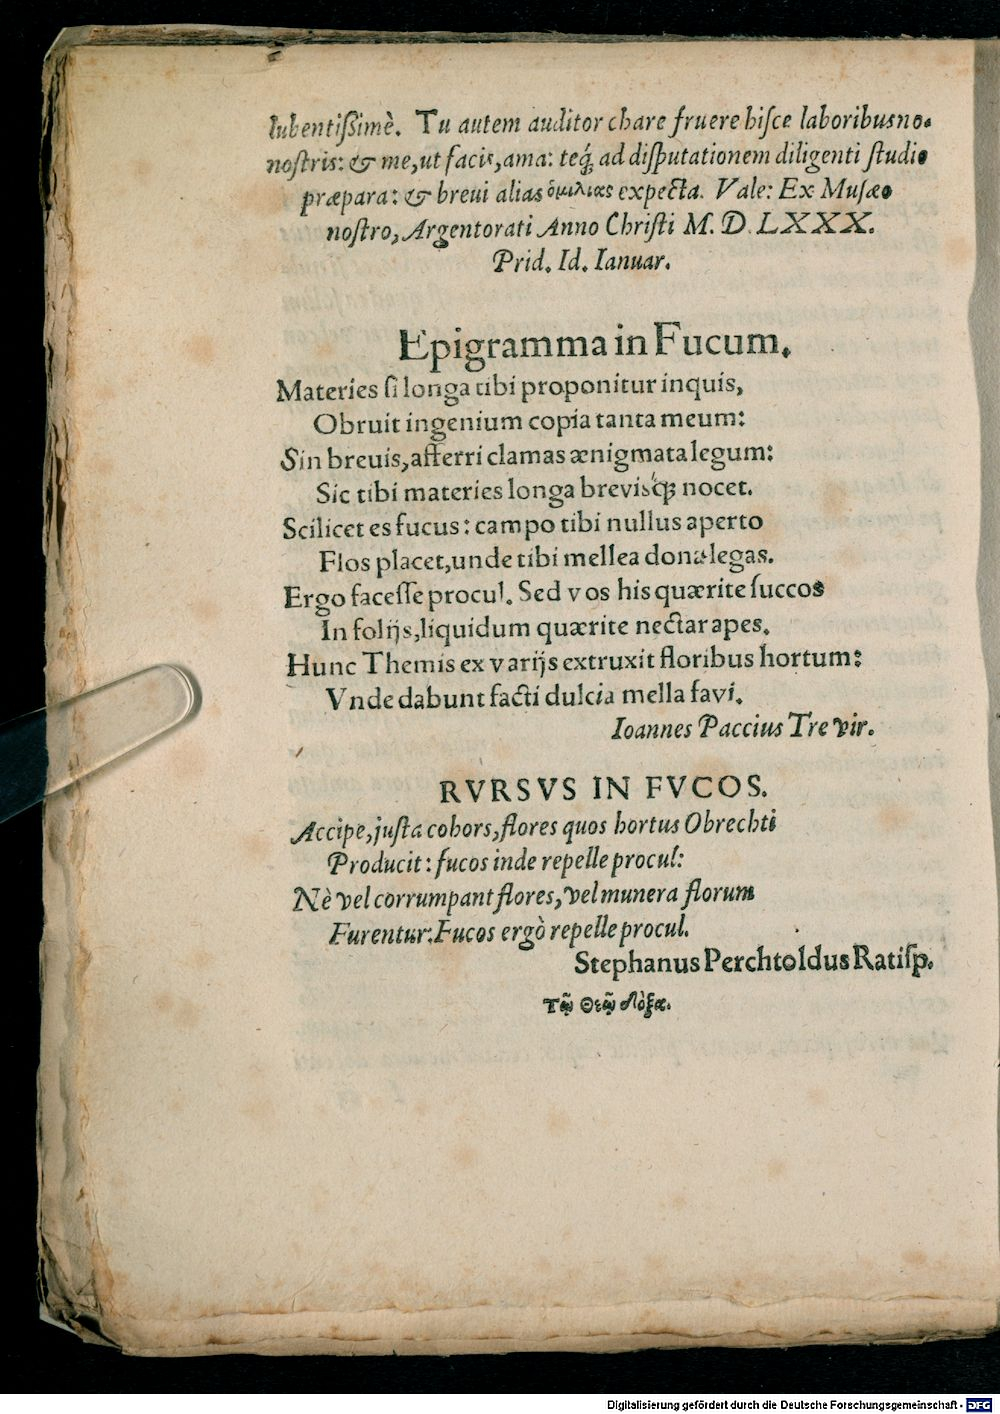 lubentißimè. Tu autem auditor chare fruere hisce laboribus no-
nostris: & me, ut facis, ama: teq́; ad disputationem diligenti studio
præpara: & breui alias ὁμιλίας expecta. Vale: Ex Musæo
nostro, Argentorati Anno Christi M. D. LXXX.
Prid. Id. Ianuar.
Epigramma in Fucum.
Materies si longa tibi proponitur inquis,
Obruit ingenium copia tanta meum:
Sin breuis, afferri clamas ænigmata legum:
Sic tibi materies longa brevisq́; nocet.
Scilicet es fucus: campo tibi nullus aperto
Flos placet, unde tibi mellea dona legas.
Ergo facesse procul. Sed vos his quærite succos
In folijs, liquidum quærite nectar apes.
Hunc Themis ex varijs extruxit floribus hortum:
Vnde dabunt facti dulcia mella favi.
Ioannes Paccius Trevir.
RVRSVS IN FVCOS.
Accipe, justa cohors, flores quos hortus Obrechti
Producit: fucos inde repelle procul:
Nè vel corrumpant flores, vel munera florum
Furentur: Fucos ergò repelle procul.
Stephanus Perchtoldus Ratisp.
Τῷ Θεῷ δόξα.
Digitalisierung gefördert durch die Deutsche Forschungsgemeinschaft - DFG